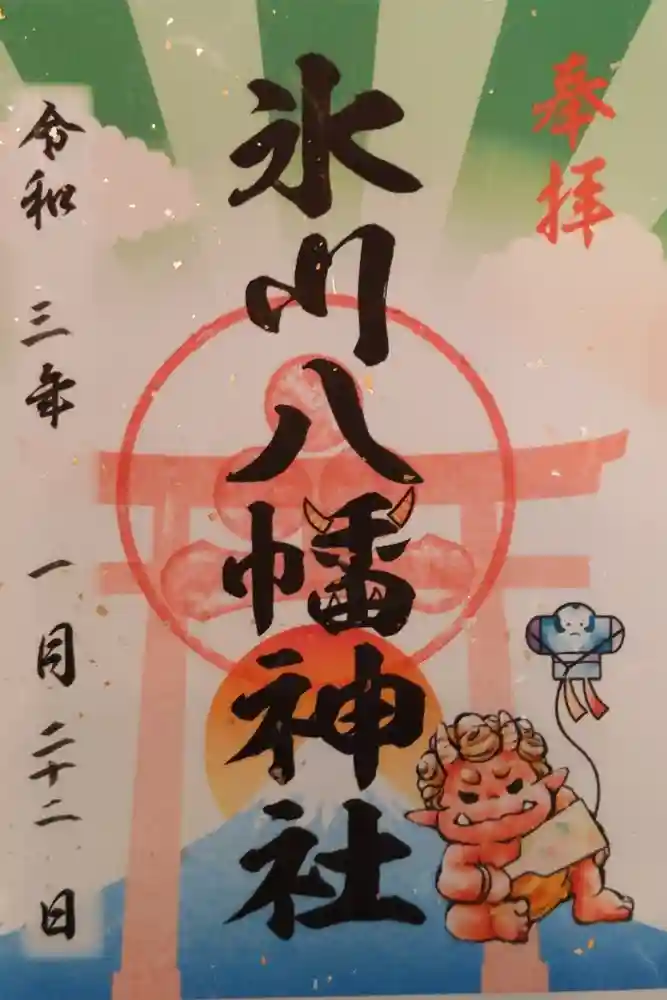 奉拝
氷川八幡神社
令和 三年 一月 二十二 日